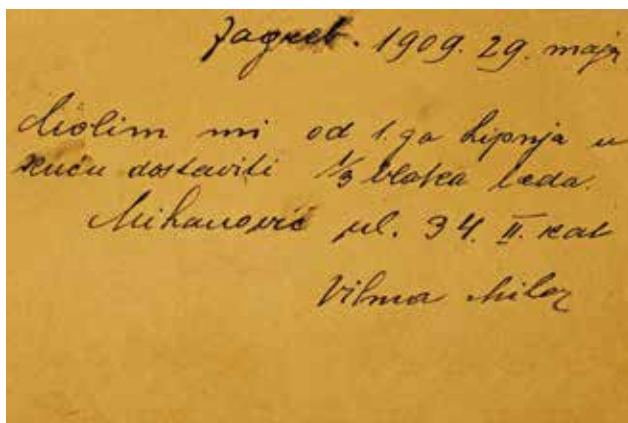 Zagreb. 1909. 29. maja
Molim mi od 1.ga Lipnja u
kuću dostaviti 1/3 bloka leda.
Mihanović ul. 34. II. kat
Vilma Miler